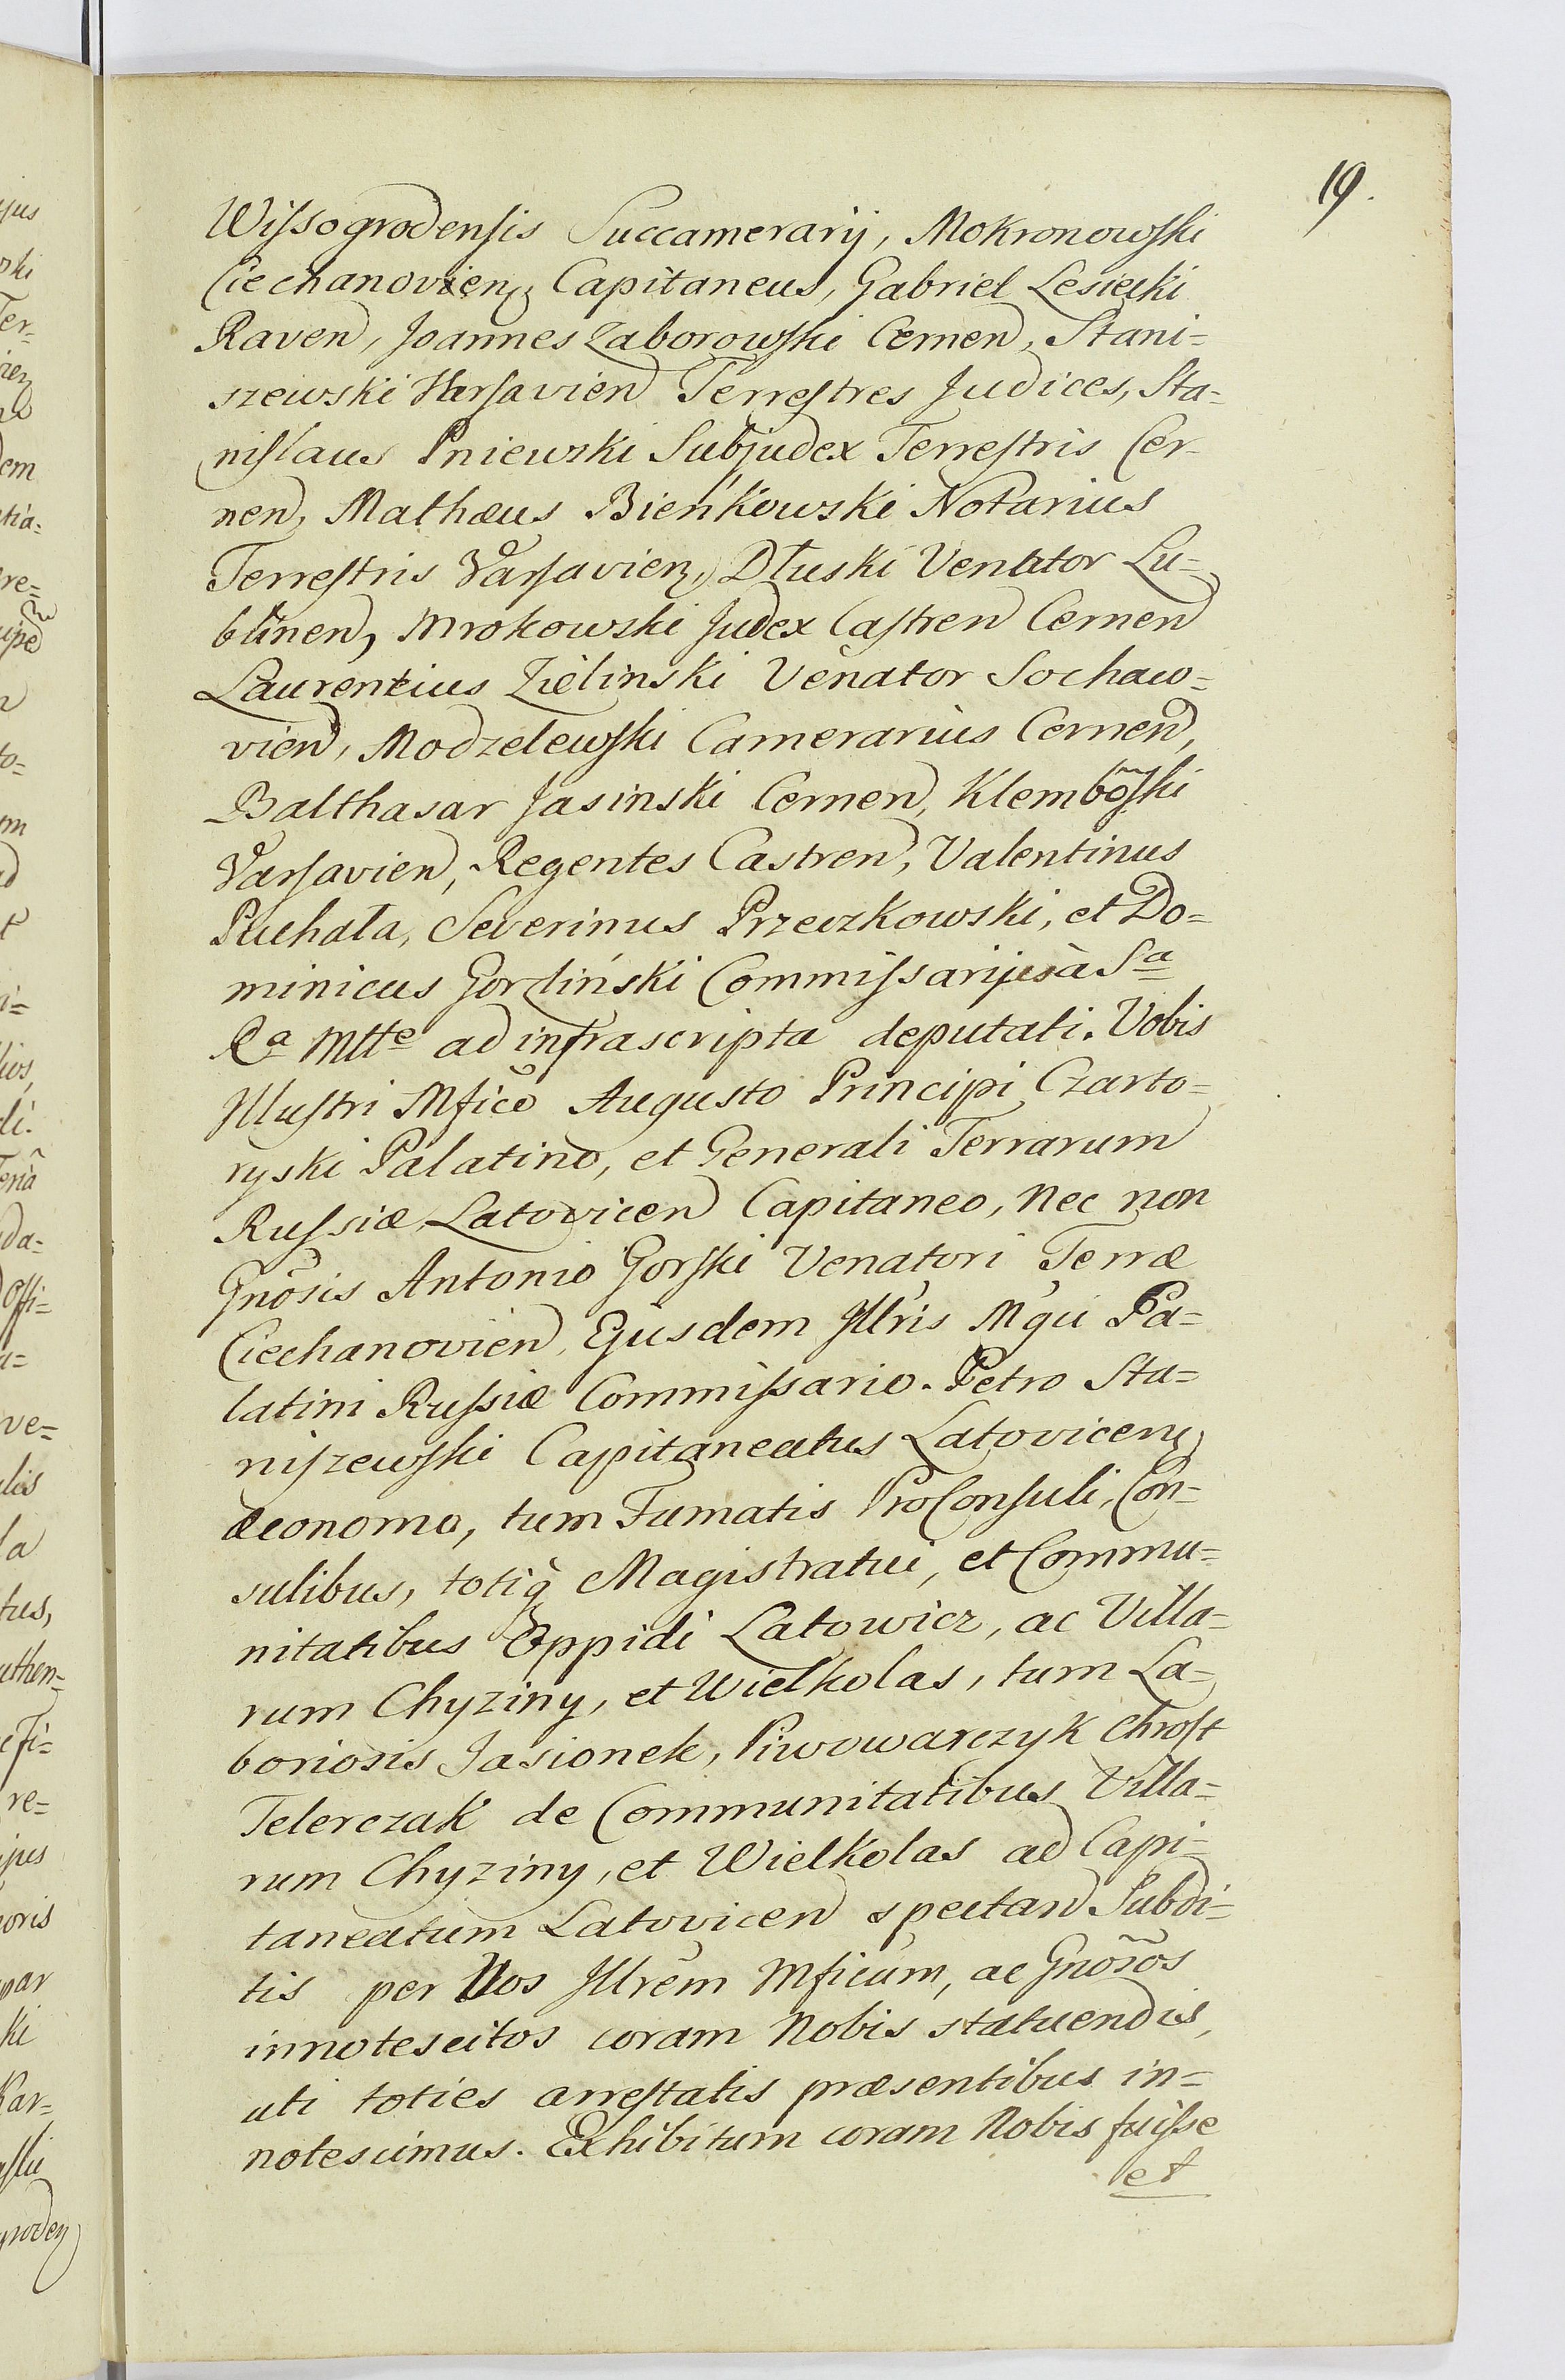 19.
Wiſsogrodenſis Succamerarij, Mokronowſki
Ciechanovien Capitaneus, Gabriel Lesiecki
Raven, Joannes Zaborowſki Cernen, Stani=
szewski Varſavien Terreſtres Judices, Sta=
niſlaus Pniewski Subjudex Terreſtris Cer-
nen, Mathæus Bieńkowski Notarius
Terreſtris Varſavien, Dłuski Venator Lu=
blinen, Mrokowski Judex Caſtren Cernen
Laurentius Zielinski Venator Sochaw=
vien, Modzelewſki Camerarius Cernen,
Balthasar Jasinski Cernen, Klembõſki
Varſavien, Regentes Castren, Valentinus
Puchała, Severinus Przeczkowski, et Do=
minicus Gordiński Commiſsarijs à Sa
Ra Mtte ad infrascripta deputati. Vobis
Illuſtri Mficõ Augusto Principi Czarto=
ryski Palatino, et Generali Terrarum
Ruſsiæ Latovicen Capitaneo, nec non
Gnõsis Antonio Gorſki Venatori Terræ
Ciechanovien, Ejusdem Illris Mgci Pa=
latini Ruſsiæ Commiſsario. Petro Sta=
niſzewſki Capitaneatus Latovicen,
œconomo, tum Famatis ProConſuli, Con=
sulibus, totiq́ Magistratui, et Commu=
nitatibus Oppidi Latowicz, ac Villa=
rum Chyziny, et Wielkolas, tum La=
boriosis Jasionek, Piwowarczyk Chroſt
Telerczak de Communitatibus Villa=
rum Chyziny, et Wielkolas ad Capi=
taneatum Latovicen spectan Subdi=
tis per Vos Illrẽm Mficum, ac Gnõsos
innotescitos coram Nobis statuendis,
uti toties arreſtatis præsentibus in=
notescimus. Exhibitum coram Nobis fuiſse
et